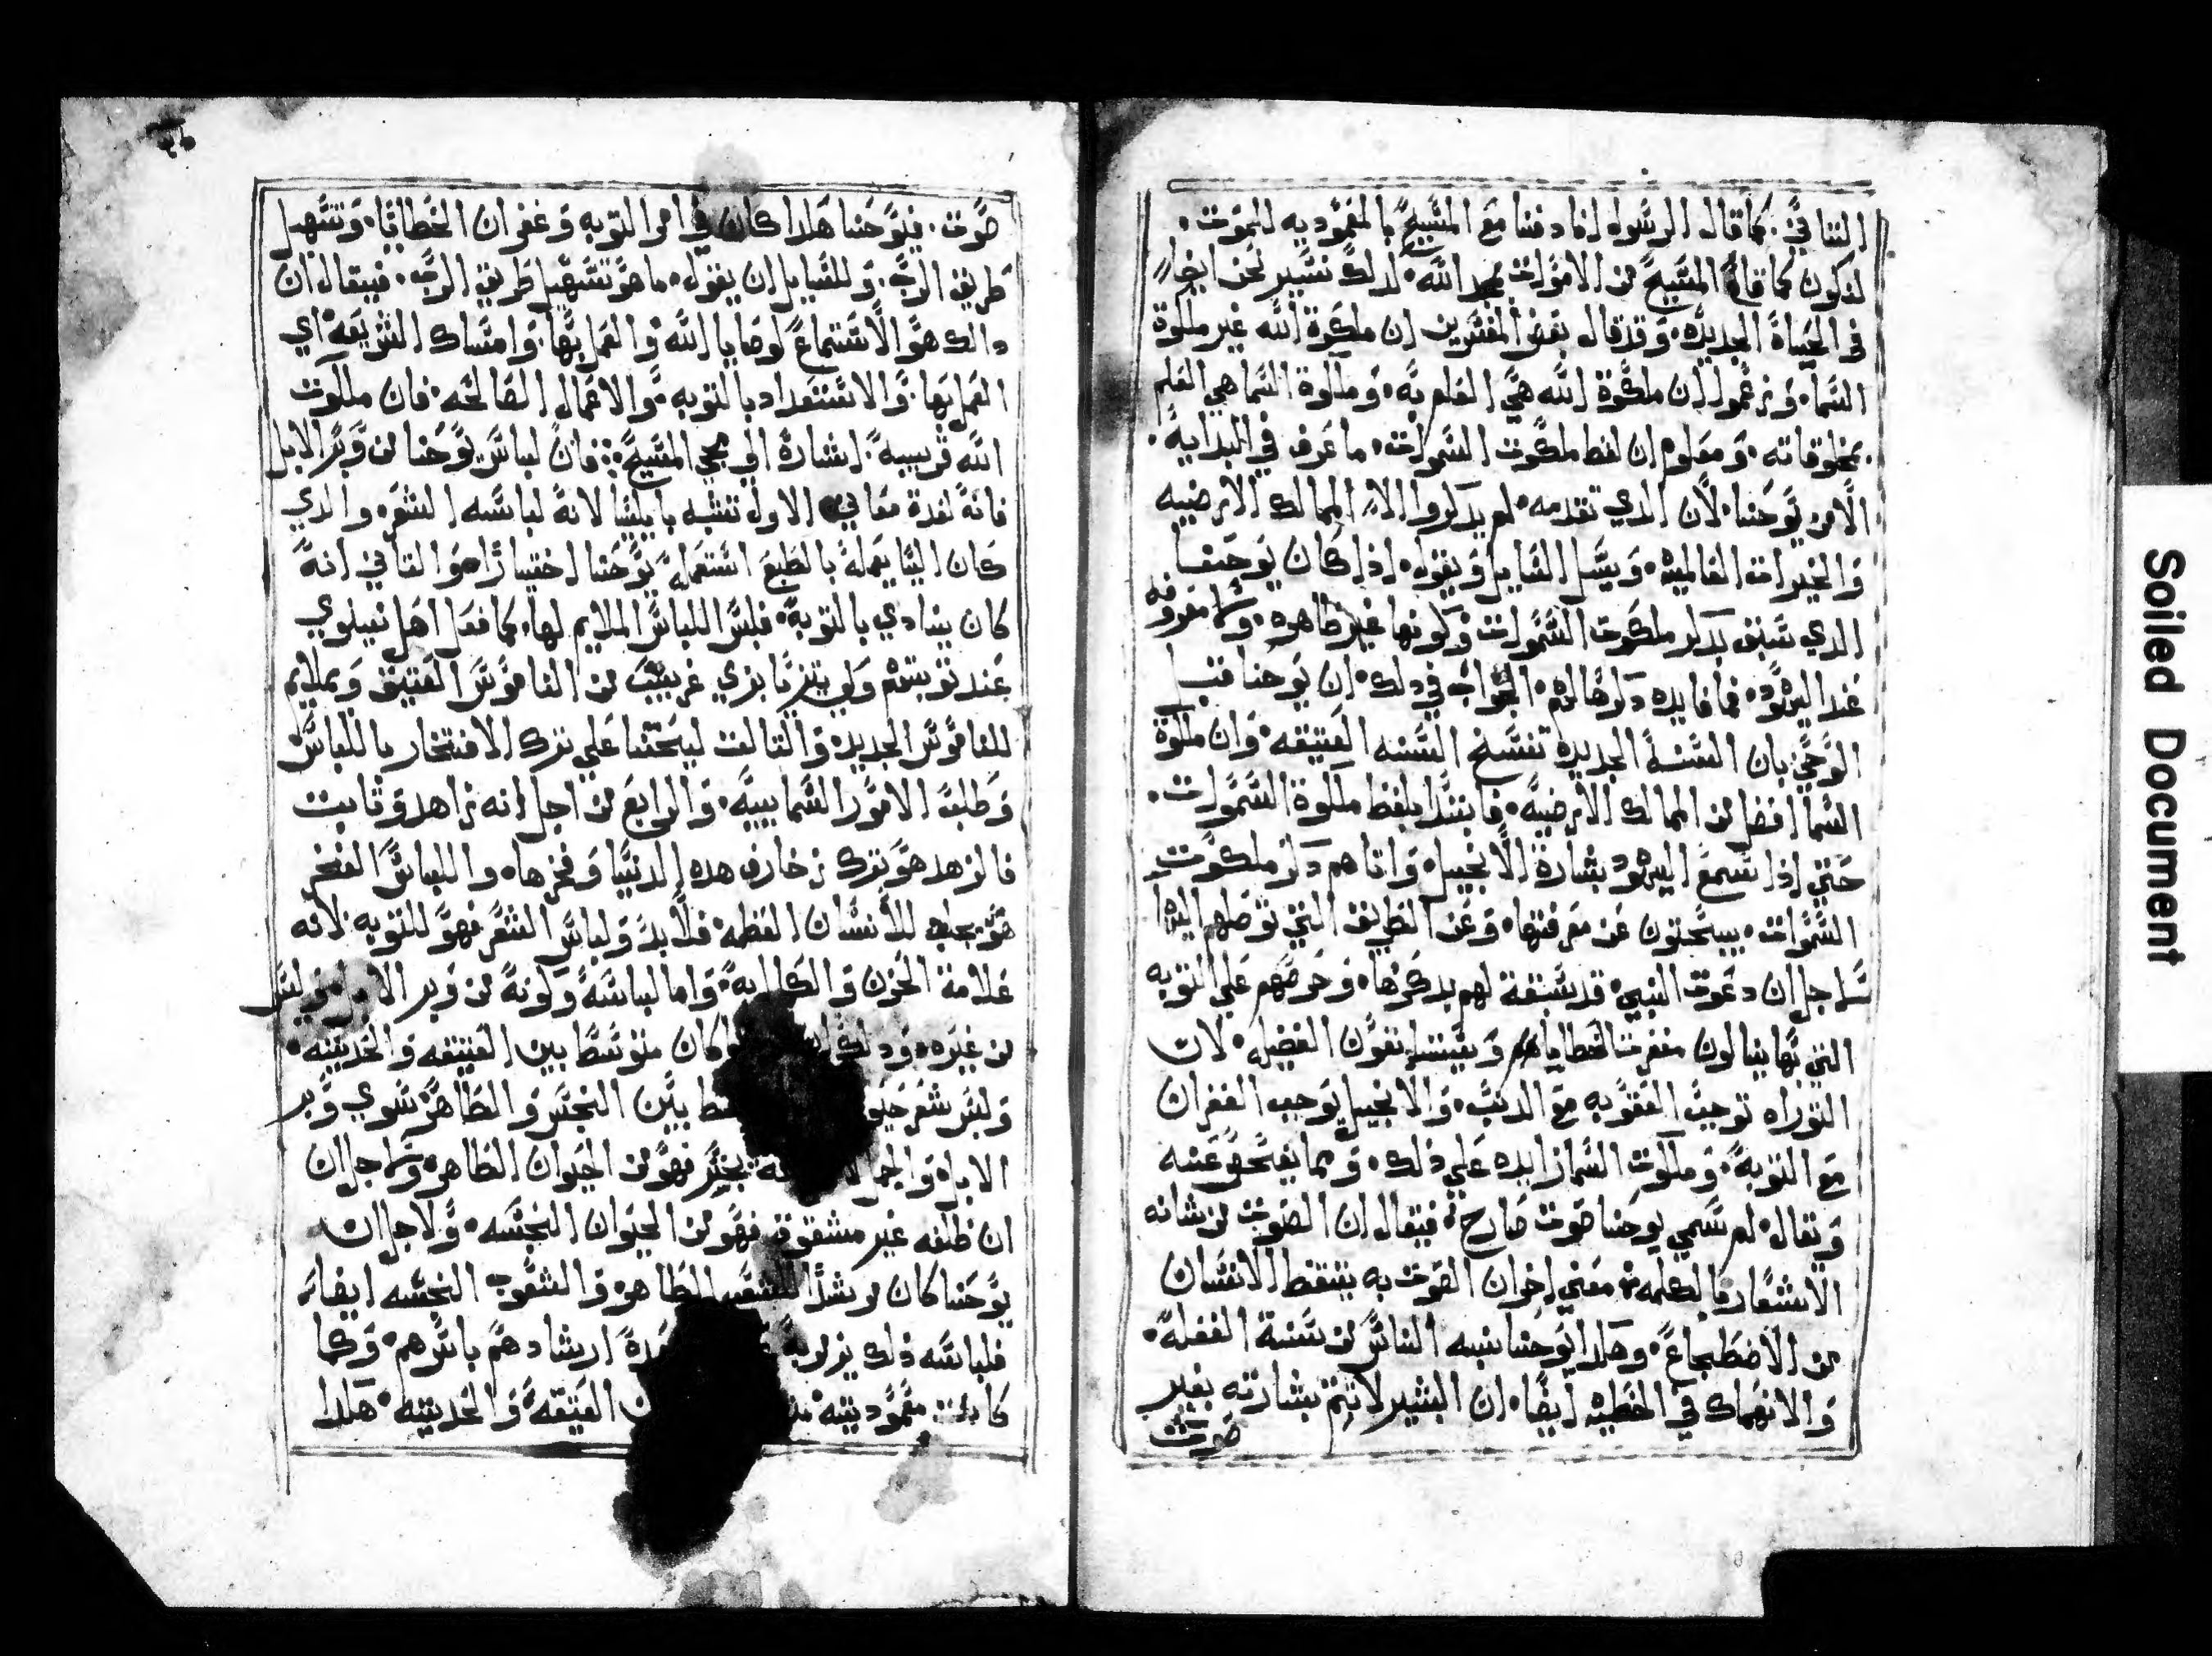 التاني. كما قال الرسول اننا دفنا مع المسيح بالمعموديه للموت.
لنكون كما قام المسيح من الاموات بمجد الله. لدلك نسير نحن ايضا
في الحياة الجديده. وقد قال بعض المفسرين ان ملكوة الله غير ملكوة
السما. وزعموا ان ملكوة الله هي العلم به. وملكوة السما هي العلم
بمخلوقاته. ومعلوم ان لفط ملكوت السموات. ما عرف في البدايه.
الا من يوحنا. لان الدي تقدمه. لم يدكروا الا الممالك الارضيه
والخيرات العالميه. ويسل السايل ويقول. اذا كان يوحنا
الدي سبق بدكر ملكوت السموات وكونها غير طاهره. ولا معروفه
عند اليهود. فما فايده دكرها لهم. الجواب في دلك. ان يوحنا قبل
الوحي بان السنة الجديده تنسخ السنه العتيقه. وان ملكوة
السما افضل من الممالك الارضيه. فابتدا بلفط ملكوة السموات.
حتي اذا سمع اليهود بشارة الانجيل. واتاهم دكر ملكوت
السموات. يبحتون عن معرفتها. وعن الطريق التي توصلهم اليها
لاجل ان دعوت النبي. قد سبقة لهم بدكرها. وحرضهم علي التوبه
التي بها ينالون مغفرت خطاياهم ويستانفون الفضيله. لان
التوراه توجب العقوبه مع الدنب. والانجيل يوجب الغفران
مع التوبة. وملكوت السما زايده علي ذلك. ومما يفحص عنه
ويقال. لم سمي يوحنا صوت صارخ. فيقال ان الصوت من شانه
الاشعار بالكلمه. معني اخر ان الصوت به يتيقظ الانسان
من الاضطجاع. وهكدا يوحنا نبه الناس من سنة الغفلة.
والانهماك في الخطيه ايضا. ان البشير لا تتم بشارته بغير
صوت
صوت. فيوحنا هكدا كان في امر التوبه وغفران الخطايا. وتسهيل
طريق الرب. وللسايل ان يقول. ما هو تسهيل طريق الرب. فيقال ان
دالك هو الاستماع لوصايا الله والعمل بها. وامساك الشريعه اي
العمل بها. والاستعداد بالتوبه. والاعمال الصالحه. فان ملكوت
الله قريبة. اشارة الي مجي المسيح. فان لباس يوحنا من وبر الابل
فانه لعدة معاني الاول تشبه بايليا لانه لباسه الشعر. والدي
كان ايليا يعمله بالطبع استعمله يوحنا اختيارا. والتاني انه
كان ينادي بالتوبة. فلبس اللباس الملايم لها. كما فعل اهل نينوي
عند توبتهم ولي يتزيا بزي غريب من الناموس العتيق وبملايم
للناموس الجديد. والتالت ليحتنا علي ترك الافتخار باللباس
وطلب الامور السماييه. والرابع من اجل انه زاهد وتابت
فالزهد هو ترك زخارف هده الدنيا وفخرها. واللباس الفخر
هو يجلب للانسان العظمه. فلا بد ولباس الشعر فهو للتوبه لانه
علامة الحزن والكابة. واما لباسه وكونه من وبر الابل وليس
من غيره. ودلك كان متوسط بين العتيقه والحديته.
ولبس شعر بين النجس والطاهر سوي وبر
الابل. والجمل يجتر فهو من الحيوان الطاهر. ولاجل ان
ان ظلفه غير مشقوق فهو من الحيوان النجسه. ولاجل ان
يوحنا كان مرشدا للشعب الطاهر والشعوب النجسه ايضا.
فلباسه ذلك ارشادهم باسرهم. وكما
كانت معموديته العتيقة والحديته. هكدا
Soiled Document